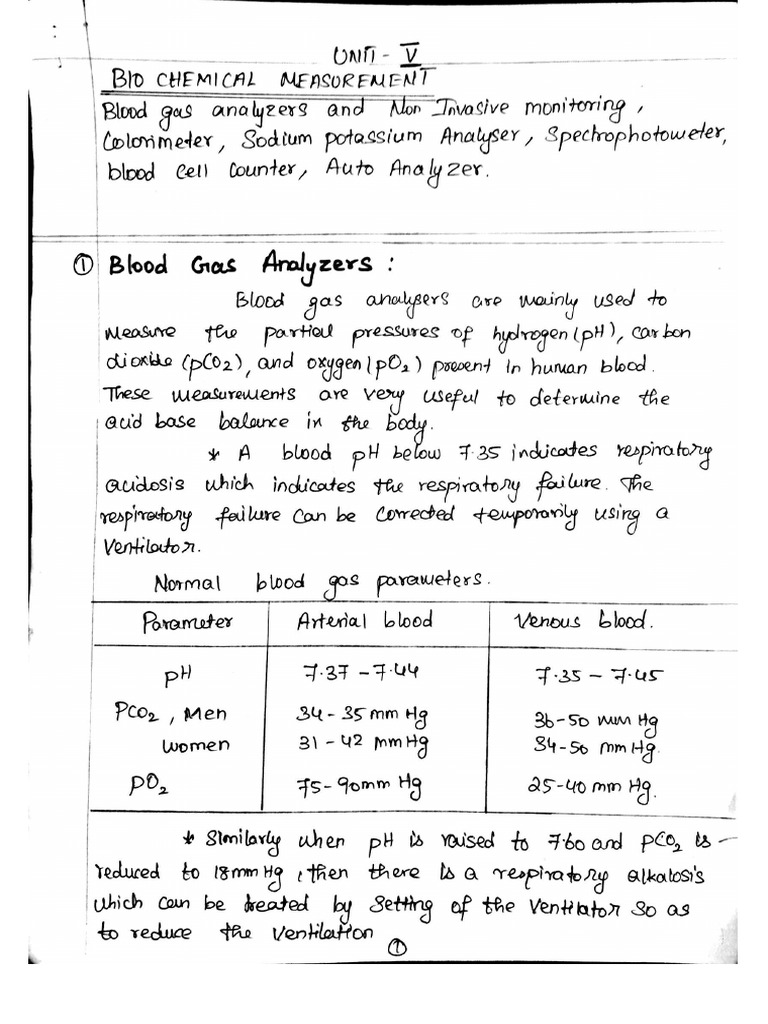 UNIT - V
BIO CHEMICAL MEASUREMENT
Blood gas analyzers and Non Invasive monitoring,
Colorimeter, Sodium potassium Analyser, Spectrophotometer,
blood cell counter, Auto Analyzer.
① Blood Gas Analyzers :
Blood gas analysers are mainly used to
measure the partial pressures of hydrogen (pH), carbon
dioxide (pCO2), and oxygen (pO2) present in human blood.
These measurements are very useful to determine the
acid base balance in the body.
* A blood pH below 7.35 indicates respiratory
acidosis which indicates the respiratory failure. The
respiratory failure can be corrected temporarily using a
Ventilator.
Normal blood gas parameters.
Parameter Arterial blood Venous blood.
pH 7.37 - 7.44 7.35 - 7.45
PCO2, Men 34 - 35 mm Hg 36-50 mm Hg
women 31 - 42 mm Hg 34-50 mm Hg.
PO2 75-90mm Hg 25-40 mm Hg.
* Similarly when pH is raised to 7.60 and pCO2 is
reduced to 18mm Hg, then there is a respiratory alkalosis
which can be treated by setting of the ventilator so as
to reduce the ventilation
①